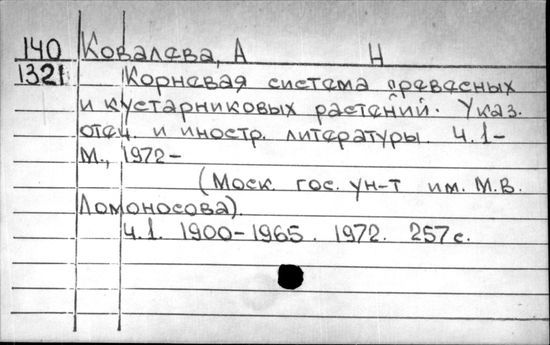 140 Ковалева, А Н
1321 Корневая система древесных
и кустарниковых растений. Указ.
отеч. и иностр. литературы. ч.1-
М., 1972-
(Моск. гос. ун-т им. М.В.
Ломоносова).
ч.1. 1900-1965. 1972. 257с.